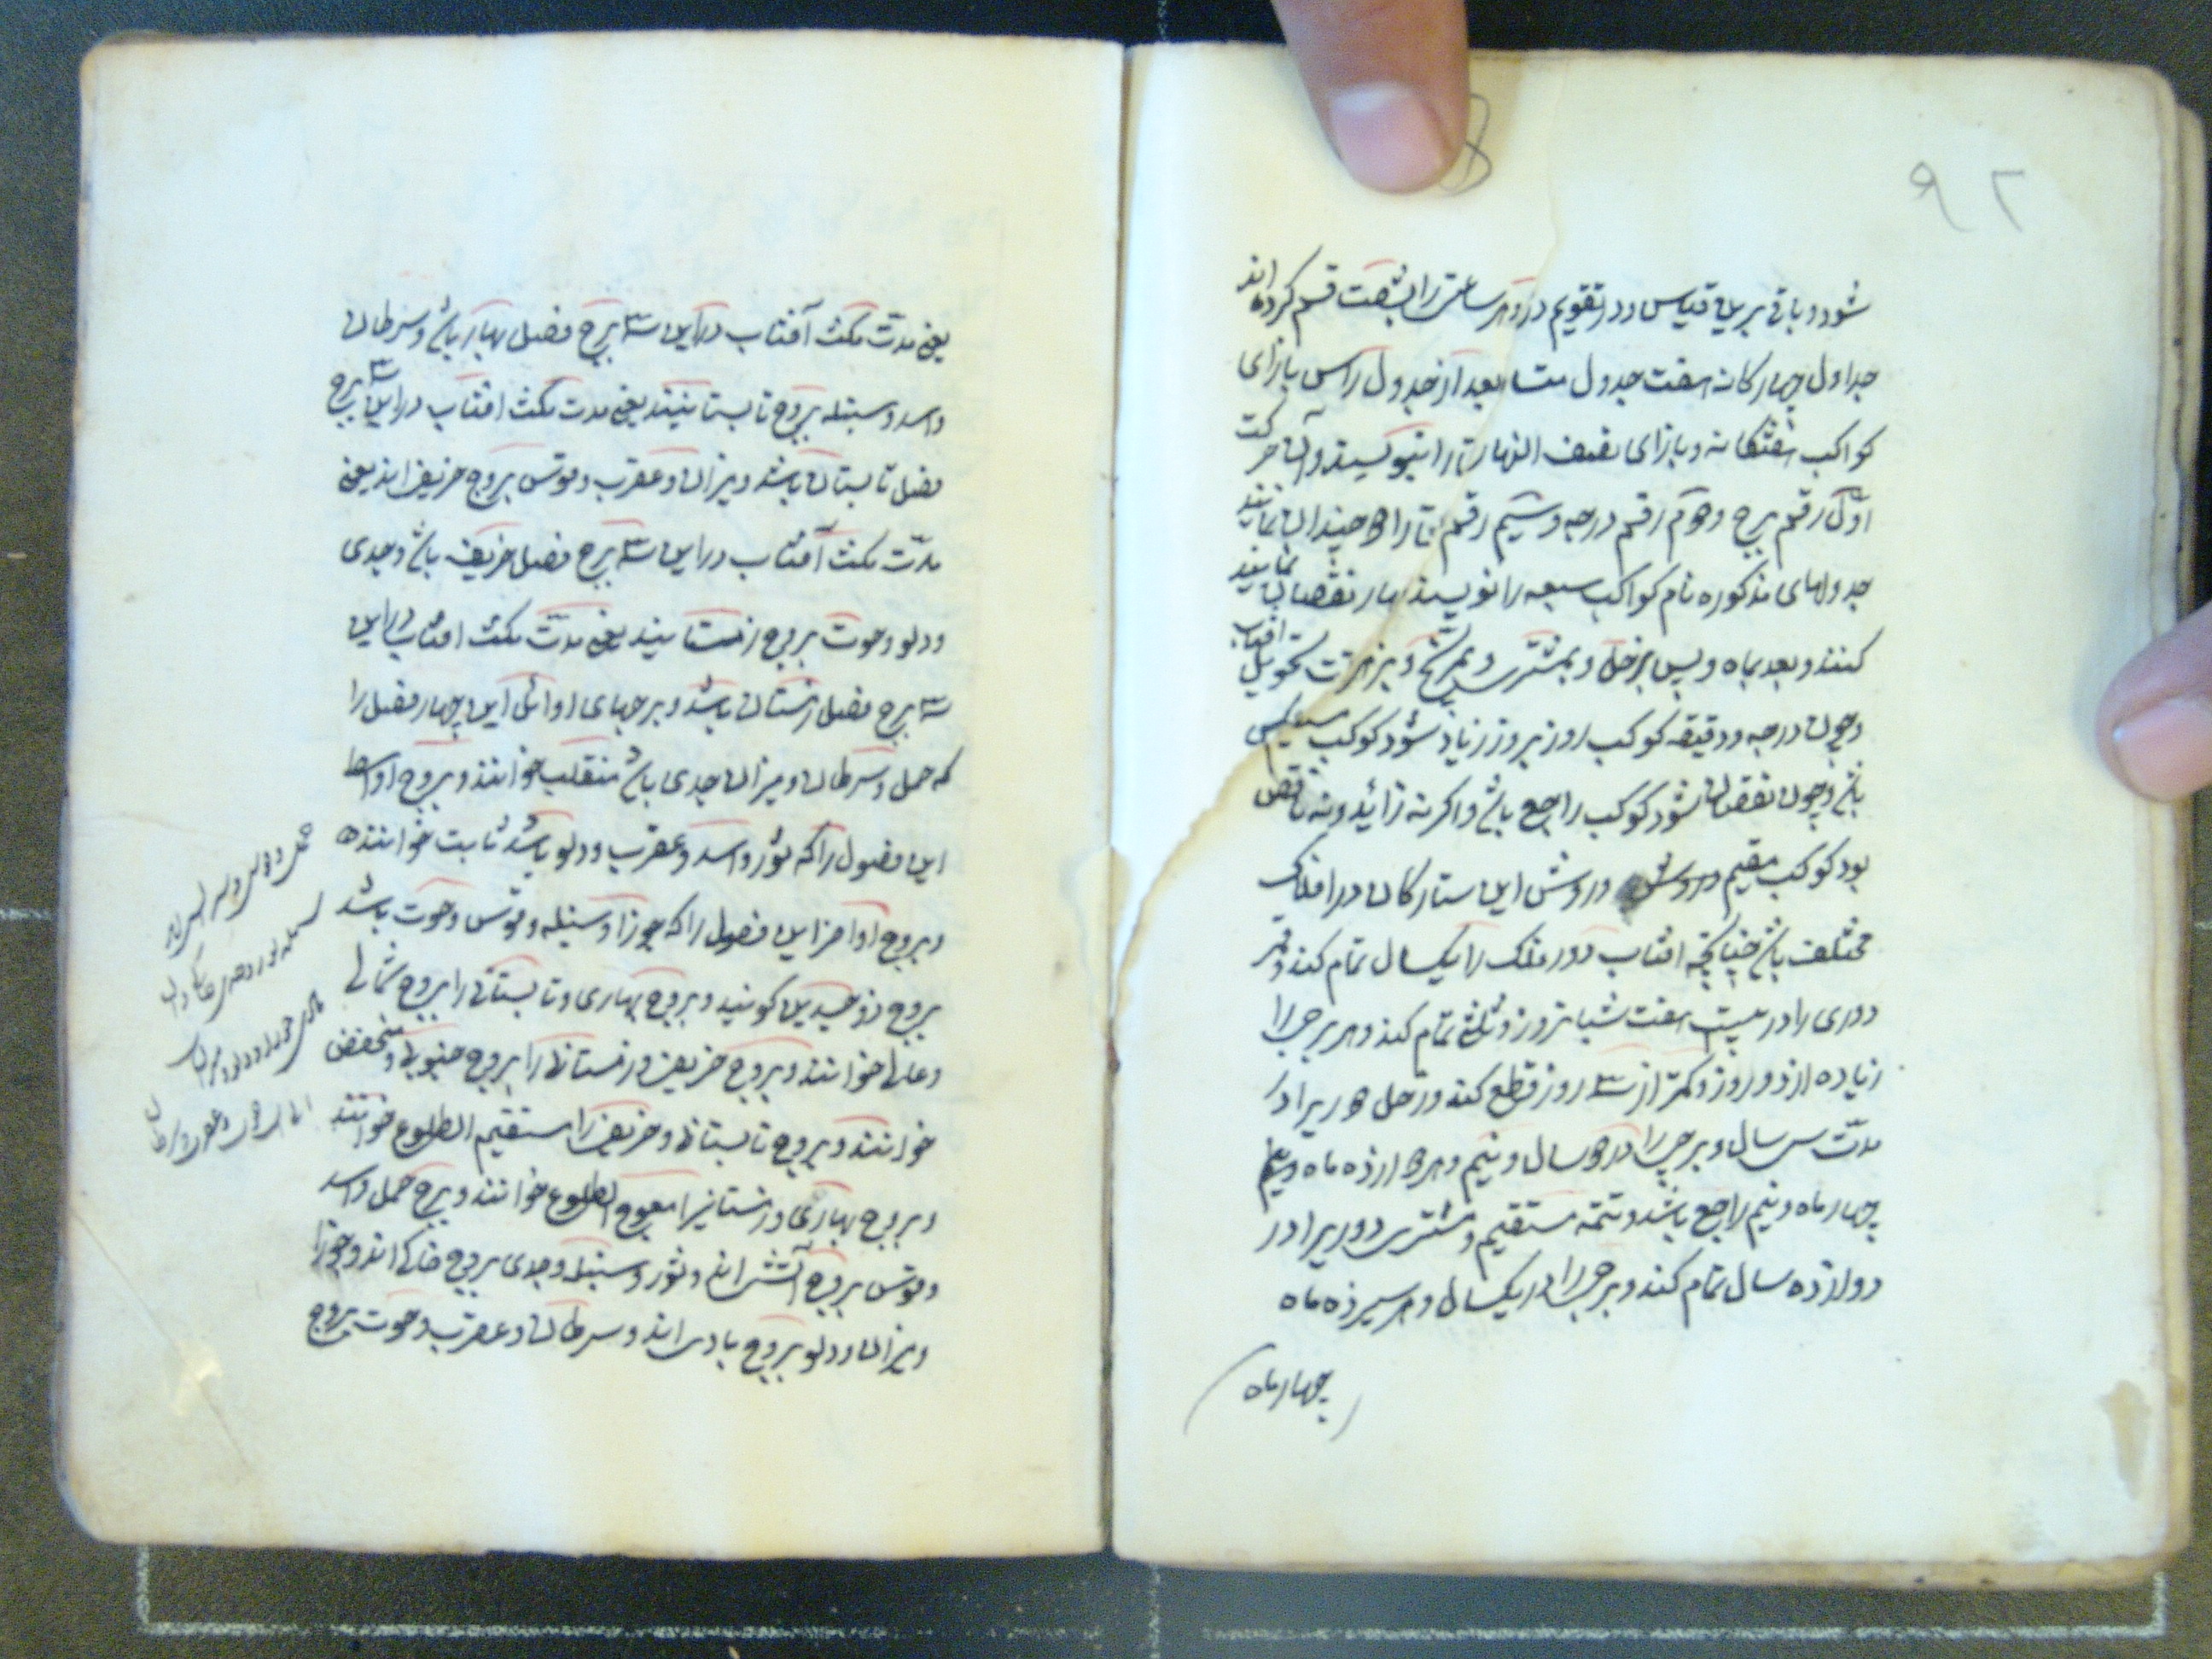 ۹۲
شود و باقی برین قیاس و در تقویم هر ساعتی را بشصت قسم کرده اند
جداول چهارکانه هفت جدول بعد از جدول راس بازای
کواکب هفتکانه و بازای نصف النهار را بنویسند و آن حرکت
اول رقم برج و دوم رقم درجه و سیم رقم را چندان نمایند
جدولهای مذکوره نام کواکب سبعه را نویسند نقصان نمایند
کنند و بعد بماه و پس بزحل و بمشتری و بمریخ و بزهره تحویل آفتاب
و چون درجه و دقیقه کوکب روز بروز زیاد شود کوکب مستقیم
باشد و چون نقصان شود کوکب راجع باشد و اکر نه زائد و نه ناقص
بود کوکب مقیم و روش این ستارکان در افلاک
مختلف باشد چنانکه افتاب دور فلک را بیکسال تمام کند و قمر
دوری را در بیست هفت شبانروز و ثلثی تمام کند و هر برجی را
زیاده از دو روز و کمتر از سه روز قطع کند و زحل دوریرا در
مدت سی سال و برجی را در دو سال و نیم و هر دوازده ماه و نیم
چهار ماه و نیم راجع باشد و تتمه مستقیم و مشتری دوریرا در
دوازده سال تمام کند و برجی را در یکسال و هر سیزده ماه
چهار ماه
یعنی مدت مکث آفتاب در این سه برج فصل بهار باشد و سرطان
و اسد و سنبله بروج تابستانیند یعنی مدت مکث افتاب در این سه برج
فصل تابستان باشد و میزان و عقرب و قوس بروج خریف اند یعنی
مدت مکث آفتاب در این سه برج فصل خریف باشد و جدی
و دلو و حوت بروج زمستانیند یعنی مدت مکث افتاب در این
سه برج فصل زمستان باشد و برجهای اوائل این چهار فصل را
که حمل و سرطان و میزان جدی باشد منقلب خوانند و بروج اواسط
این فصول را که ثور و اسد و عقرب و دلو باشد ثابت خوانند
و بروج اواخر این فصول را که جوزا و سنبله و قوس و حوت باشد
بروج ذو جسدین کویند و بروج بهاری و تابستانی را بروج شمالی
و عالی خوانند و بروج خریف و زمستانی را بروج جنوبی و منخفض
خوانند و بروج تابستانی و خریف را مستقیم الطلوع خوانند
و بروج بهاری و زمستانیرا معوج الطلوع خوانند و برج حمل و اسد
و قوس بروج آتشی اند و ثور و سنبله و جدی بروج خاکی اند و جوزا
و میزان و دلو بروج بادی اند و سرطان و عقرب و حوت بروج